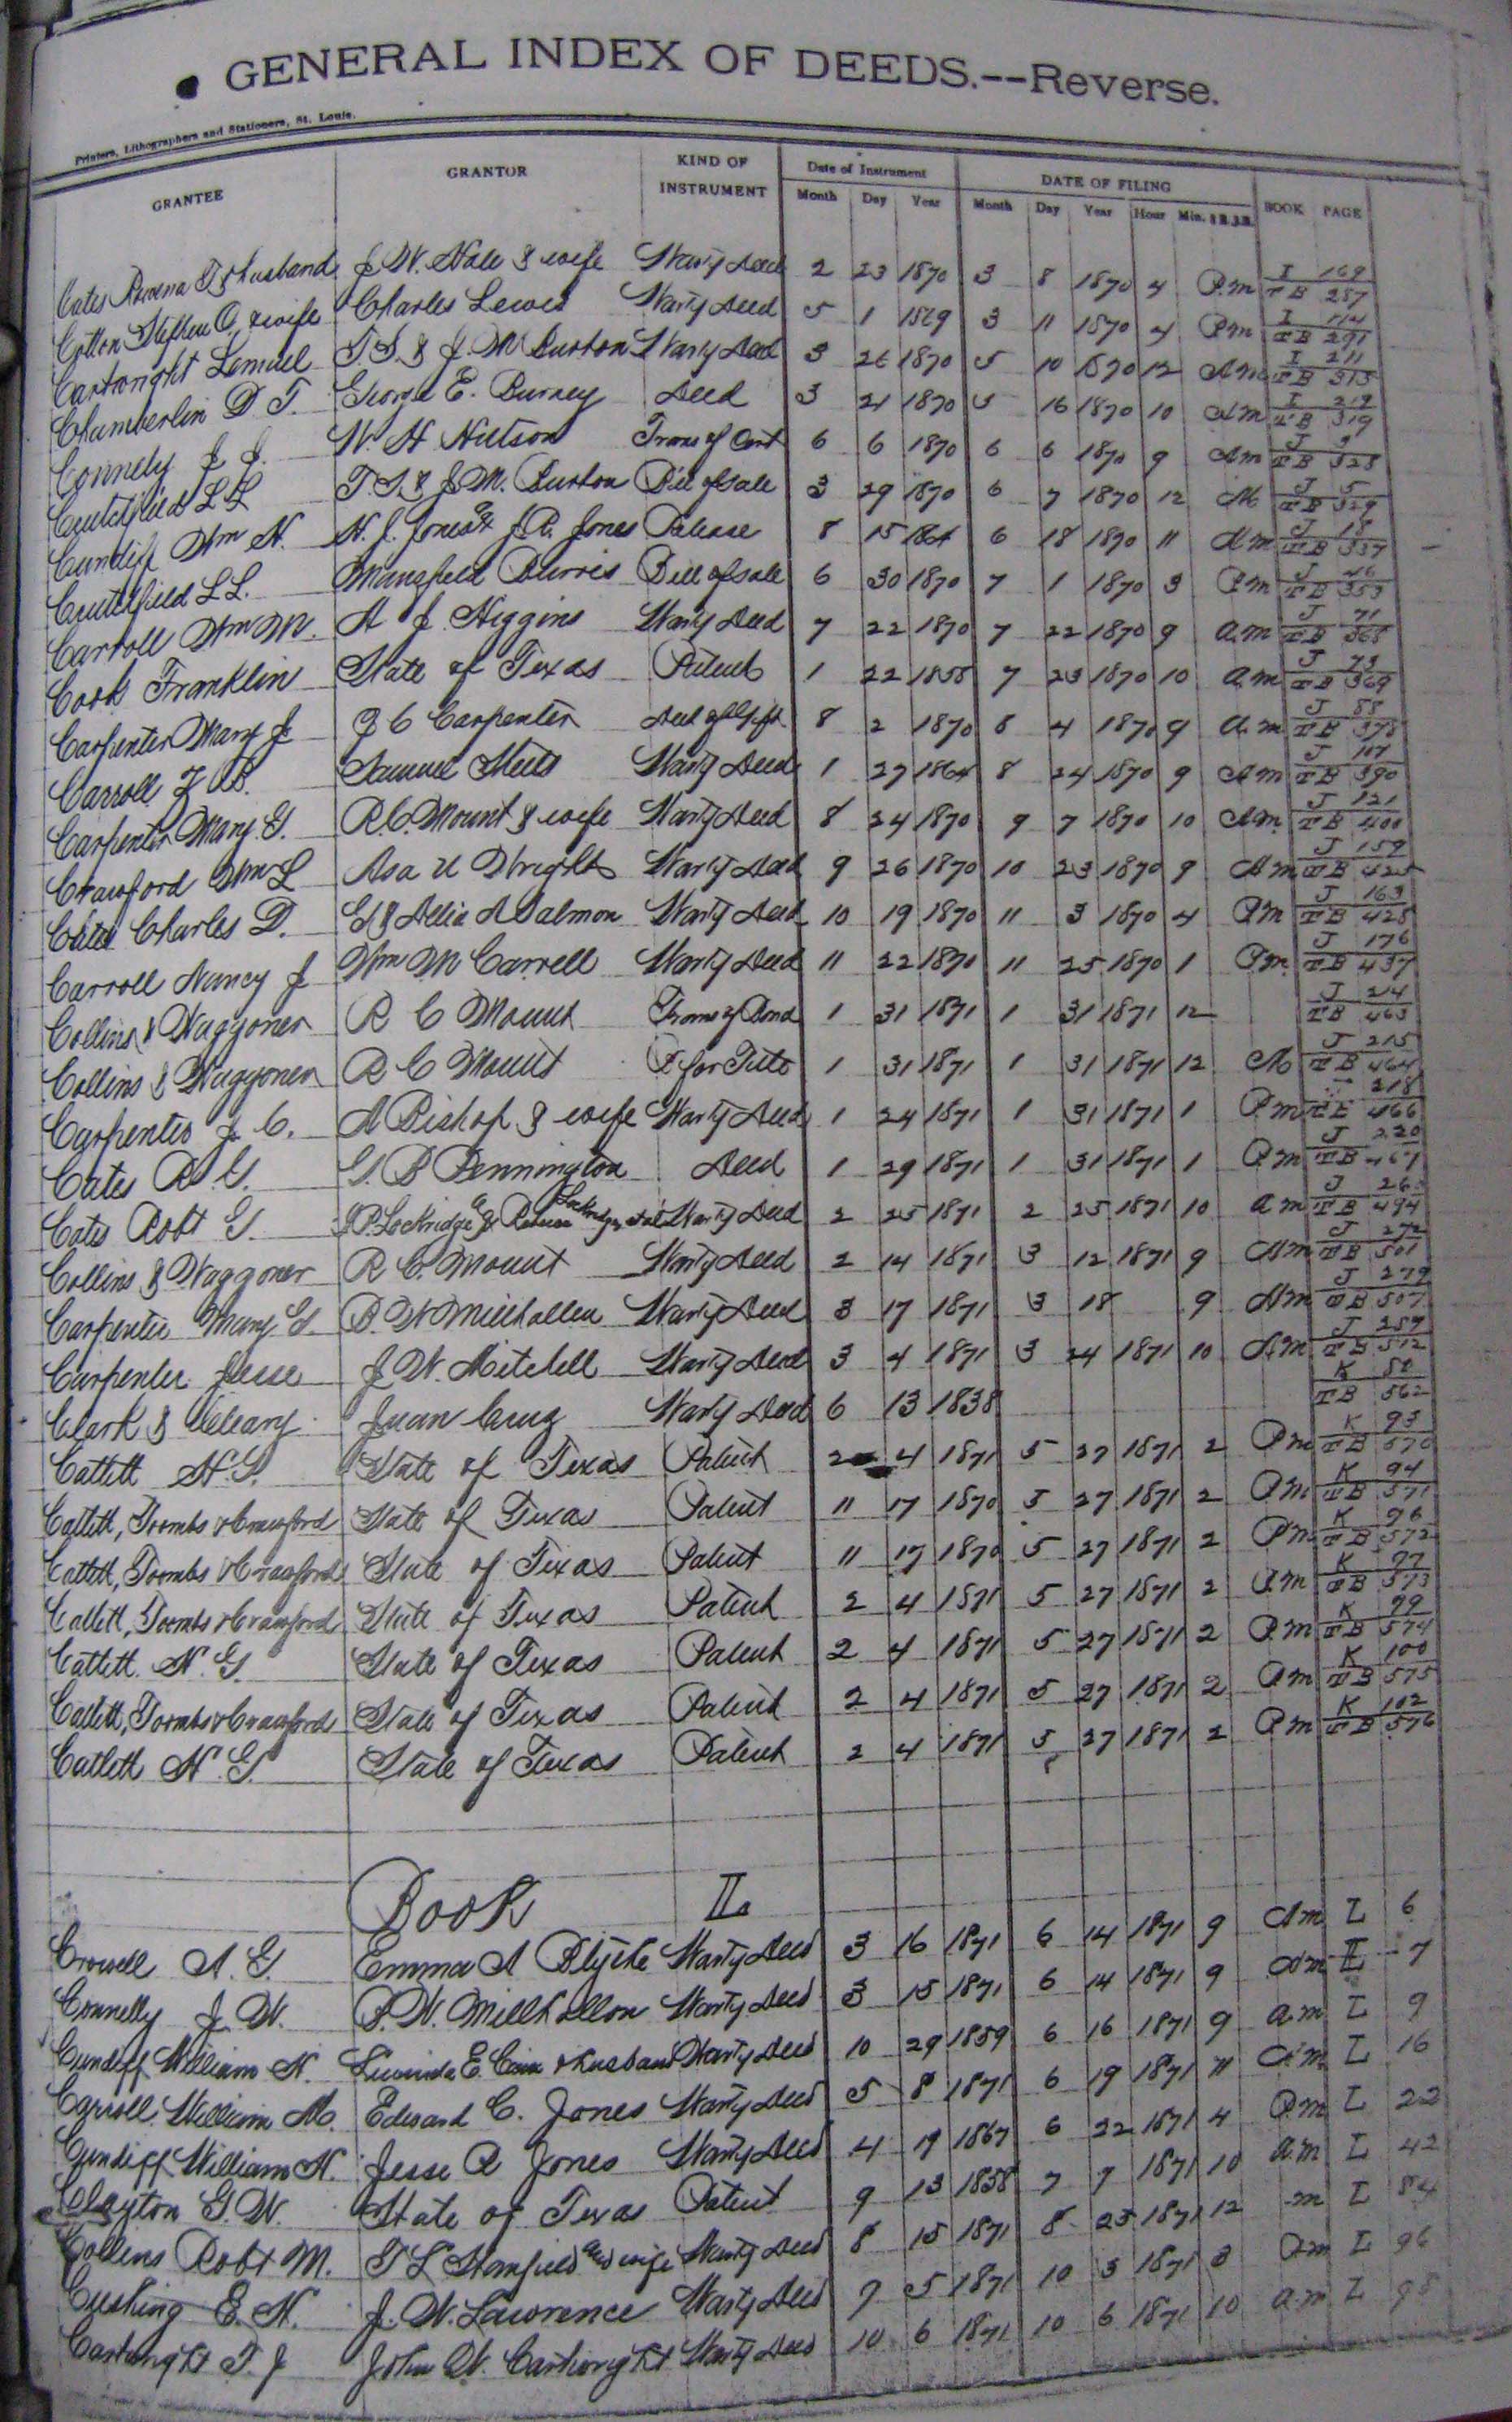 GENERAL INDEX OF DEEDS.--Reverse.
Printers, Lithographers and Stationers, St. Louis.
GRANTEE GRANTOR KIND OF INSTRUMENT Date of Instrument DATE OF FILING BOOK PAGE
Month Day Year Month Day Year Hour Min.
Cates Rowena T & husband J. W. Hale & wife Warty Deed 2 23 1870 3 8 1870 4 P.m I 169 TB 287
Cotton Stephen O, & wife Charles Lewis Warty Deed 5 1 1869 3 11 1870 4 P.m I 174 TB 291
Cartwright Lemuel T. S. & J. M Burton Warty Deed 3 26 1870 5 10 1870 12 A.m I 211 TB 315
Chamberlin D T. George E. Burney Deed 3 21 1870 5 16 1870 10 A.m I 219 TB 319
Connely J. J. W. H Hutson Trans of Cert 6 6 1870 6 6 1870 9 A.m J TB 328
Crutchfield L L T. S. & J. M. Burton Bill of sale 3 29 1870 6 7 1870 12 M J 5 TB 329
Cundiff Wm H. N. J. Jones & J. R. Jones Release 8 15 1864 6 18 1870 11 A.m J TB 337
Crutchfield L L. Mansfield Burris Bill of sale 6 30 1870 7 1 1870 3 P.m J 46 TB 353
Carroll Wm M. A J. Higgins Warty Deed 7 22 1870 7 22 1870 9 a.m J 71 TB 368
Cook Franklin State of Texas Patent 1 22 1858 7 23 1870 10 a.m J 73 TB 369
Carpenter Mary J J C Carpenter Deed of Gift 8 2 1870 8 4 1870 9 a.m J 88 TB 378
Carroll J. B. Samuel Sheets Warty Deed 1 27 1864 8 24 1870 9 A.m J 107 TB 390
Carpenter Mary. G. R. C. Mount & wife Warty Deed 8 24 1870 9 7 1870 10 A.m. J 121 TB 400
Crawford Wm L Asa U Wright Warty Deed 9 26 1870 10 23 1870 9 A.m J 159 TB 425
Cates Charles D. G & Allia A Salmon Warty Deed 10 19 1870 11 3 1870 4 P.m J 163 TB 428
Carroll Nancy J Wm M Carrell Warty Deed 11 22 1870 11 25 1870 1 P.m. J 176 TB 437
Collins & Waggoner R C Mount Trans of Bond 1 31 1871 1 31 1871 12 J 214 TB 463
Collins & Waggoner R C Mount for Title 1 31 1871 1 31 1871 12 M J 215 TB 464
Carpenter J. C. A Bishop & wife Warty Deed 1 24 1871 1 31 1871 1 P.m 218 TB 466
Cates R. G. G. B Pennington Deed 1 29 1871 1 31 1871 1 P.m J 220 TB 467
Cates Robt G. J P. Lockridge & Lockridge et al Warty Deed 2 25 1871 2 25 1871 10 a.m J TB 494
Collins & Waggoner R C. Mount Warty Deed 2 14 1871 3 12 1871 9 A.m J 272 TB 501
Carpenter Mary G. B. W Millhollen Warty Deed 3 17 1871 3 18 9 A.m J 279 TB 507
Carpenter Jesse J. W. Mitchell Warty Deed 3 4 1871 3 24 1871 10 A.m J 287 TB 512
Clark & Juan Cruz Warty Deed 6 13 1838 K TB 562
Catlett H. G. State of Texas Patent 2 4 1871 5 27 1871 2 P.m K 93 TB 570
Catlett, Toombs & Crawford State of Texas Patent 11 17 1870 5 27 1871 2 P.m. K 94 TB 571
Catlett, Toombs & Crawford State of Texas Patent 11 17 1870 5 27 1871 2 P.m K 96 TB 572
Catlett, Toombs & Crawford State of Texas Patent 2 4 1871 5 27 1871 2 P.m K 97 TB 573
Catlett. H. G. State of Texas Patent 2 4 1871 5 27 1871 2 P.m K 99 TB 574
Catlett, Toombs & Crawford State of Texas Patent 2 4 1871 5 27 1871 2 P.m K 100 TB 575
Catlett H. G. State of Texas Patent 2 4 1871 5 27 1871 2 P.m K 102 TB 576
Book L.
Crowell A. G. Emma A Blythe Warty Deed 3 16 1871 6 14 1871 9 A.m L 6
Connelly J. W. B. W. Millhollon Warty Deed 3 15 1871 6 14 1871 9 A.m L 7
Cundiff William H. Lucinda E. Cain & husband Warty Deed 10 29 1859 6 16 1871 9 a.m L 9
Carroll, William M. Edward C. Jones Warty Deed 5 8 1871 6 19 1871 11 A.m. L 16
Cundiff William H. Jesse R Jones Warty Deed 4 19 1867 6 22 1871 4 P.m L 22
Clayton G. W. State of Texas Patent 9 13 1858 7 7 1871 10 a.m L 42
Collins Robt M. T L Stanfield and wife Warty Deed 8 15 1871 8 25 1871 12 m L 84
Cushing E. H. J. W. Lawrence Warty Deed 9 5 1871 10 3 1871 3 P.m L 96
Cartwright T. J John W. Cartwright Warty Deed 10 6 1871 10 6 1871 10 a.m L 98